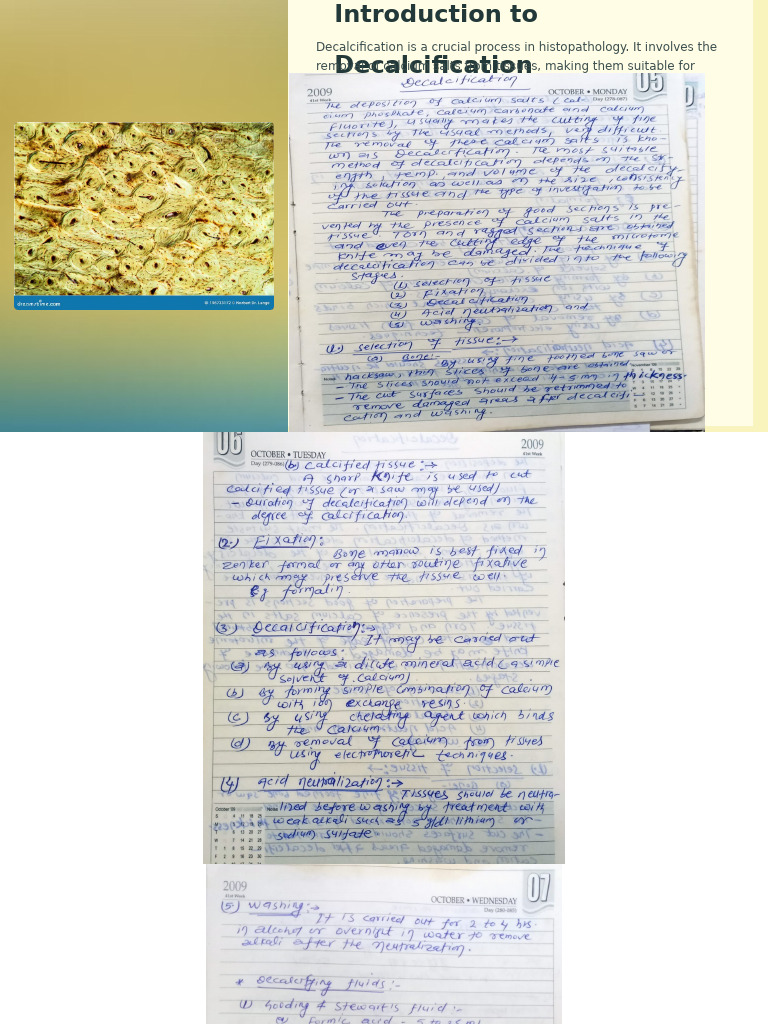 Introduction to
Decalcification
Decalcification is a crucial process in histopathology. It involves the
removal of calcium salts from tissues, making them suitable for
dreamstime.com
2009
41st Week
Decalcification
OCTOBER • MONDAY
Day (278-087)
05
The deposition of calcium salts (cal-
cium phosphate calcium carbonate and calcium
Fluorite), usually makes the cutting of fine
sections by the usual methods, very difficult
The removal of these calcium salts is kno-
wn as Decalcification. The most suitable
method of decalcification depends on the str-
ength, temp. and volume of the decalcify-
ing solution as well as on the size, consistency
of the tissue and the type of investigation to be
carried out.
The preparation of good sections is pre-
vented by the presence of calcium salts in the
tissue Torn and ragged sections are obtained
and even the cutting edge of the microtome
knife may be damaged. The technique of
decalcification can be divided into the following
Stages.
(1) selection of tissue
(2) Fixation
(3) Decalcification
(4) Acid neutralization, and
(5) washing
(1.) selection of tissue:→
(a) Bone:-
By using fine toothed bone saw or
hacksaw, thin slices of bone are obtained
- The slices should not exceed 4-5 mm in thickness.
- The cut surfaces should be retrimmed to
remove damaged areas after decalcifi-
cation and washing.
06
OCTOBER • TUESDAY
Day (279-086)
2009
41st Week
(b) Calcified tissue:→
A sharp Knife is used to cut
calcified tissue (or a saw may be used)
- Duration of decalcification will depend on the
degree of calcification.
(2.) Fixation:
Bone marrow is best fixed in
Zenker formal or any other routine fixative
which may preserve the tissue well.
Eg formalin.
(3) Decalcification:→
It may be carried out
as follows.
(a) By using a dilute mineral acid (a simple
solvent of calcium)
(b) By forming simple combination of calcium
with ion exchange resins.
(c) By using chelating agent which binds
the Calcium
(d) By removal of calcium from tissues
using electrophoretic techniques.
(4) acid neutralization:→
Tissues should be neutra-
lized before washing by treatment with
weak alkali such as 5 g/dl lithium or
sodium sulfate
October '09
Notes
2009
41st Week
OCTOBER • WEDNESDAY
Day (280-085)
07
(5) washing:→
It is carried out for 2 to 4 hrs.
in alcohol or overnight in water to remove
alkali after the neutralization.
* Decalcifying fluids:-
(1) Gooding & Stewart's fluid:-